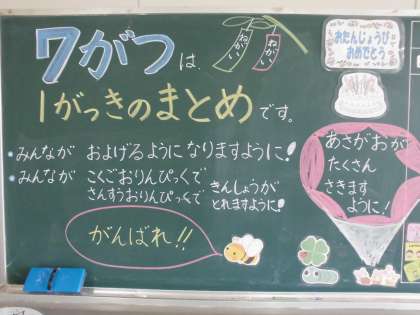 7がつは
1がっきのまとめです。
ねがい
ねがい
おたんじょうび
おめでとう
みんなが およげるようになりますように!
みんなが こくごおりんぴっくで
さんすうおりんぴっくで
きんしょうが
とれますように!
がんばれ!!
あさがおが
たくさん
さきます
ように!